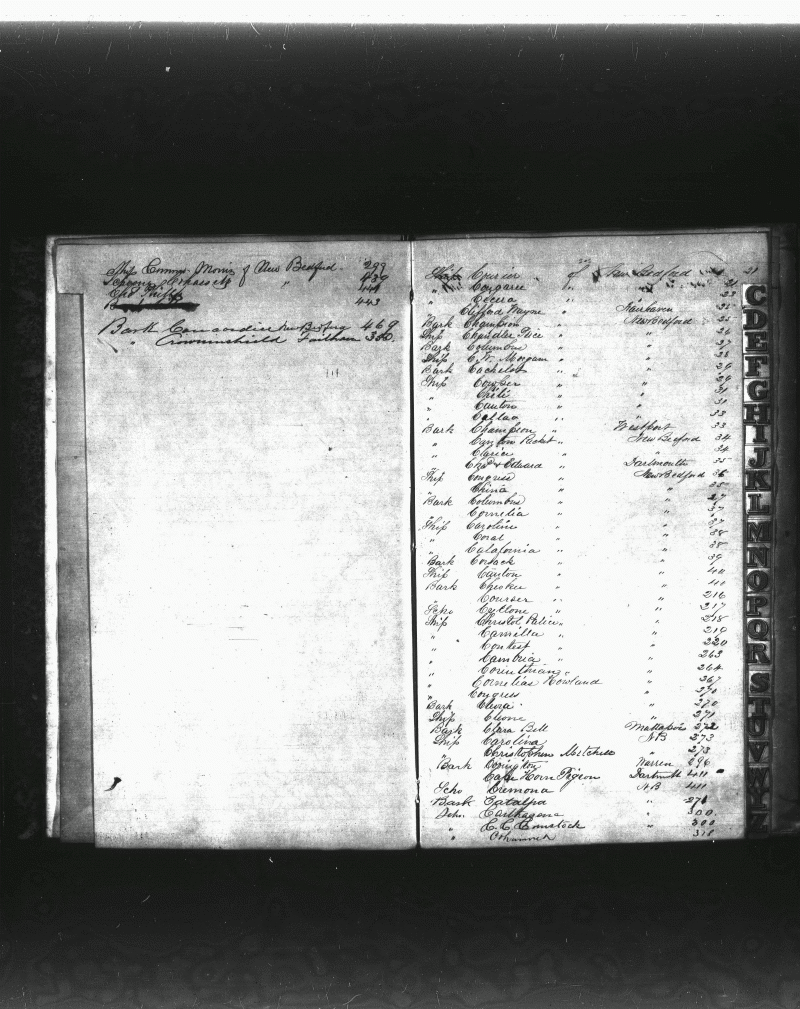 Ship Commo. Morris of New Bedford. 299
439
441
443
Bark Comandier New Bedford 469
" Crowninshield Fairhaven 350.
Ship Courier of New Bedford 21
" Congaree " 21
" Cicero " 23
" Clifford Wayne " Fairhaven
Bark " New Bedford 25
Ship Chandler Price " " 26
Bark Columbus " " 27
Ship C. W. Morgan " " 28
Bark Cachelot " " 29
Ship Cowper " " 29
" Chili " " 31
" Canton " " 31
" Callao " " 33
Bark Champion " Westport 33
" Canton Packet " New Bedford 34
" Clarice " " 34
" & Edward " Dartmouth 35
Ship Congress " New Bedford 36
" China " " 35
Bark Columbus " " 27
" Cornelia " " 37
Ship Caroline " " 37
" Coral " " 38
" Calafornia " " 38
Bark Cossack " " 39
Ship Canton " " 40
Bark Cherokee " " 40
" Courser " " 216
Scho Cyclone " " 217
Ship " " 218
" Camilla " " 219
" Contest " " 220
" Cambria " " 263
" Corinthian " " 264
" Cornelius Howland " 267
" Congress " 270
Bark Clara " 270
Ship Cleone " 271
Bark Clara Bell Mattapois 272
Ship Carolina N B 273
" Christopher Mitchell " 273
Bark Covington Warren 296
" Cape Horn Pigeon Dartmouth 411
Scho Cremona N B 411
Bark Catalpa " 276
Scho. Carthagena " 300.
" C. C. Comstock " 300
" " 318
C
D
E
F
G
H
I
J
K
L
M
N
O
P
Q
R
S
T
U
V
W
Y
Z